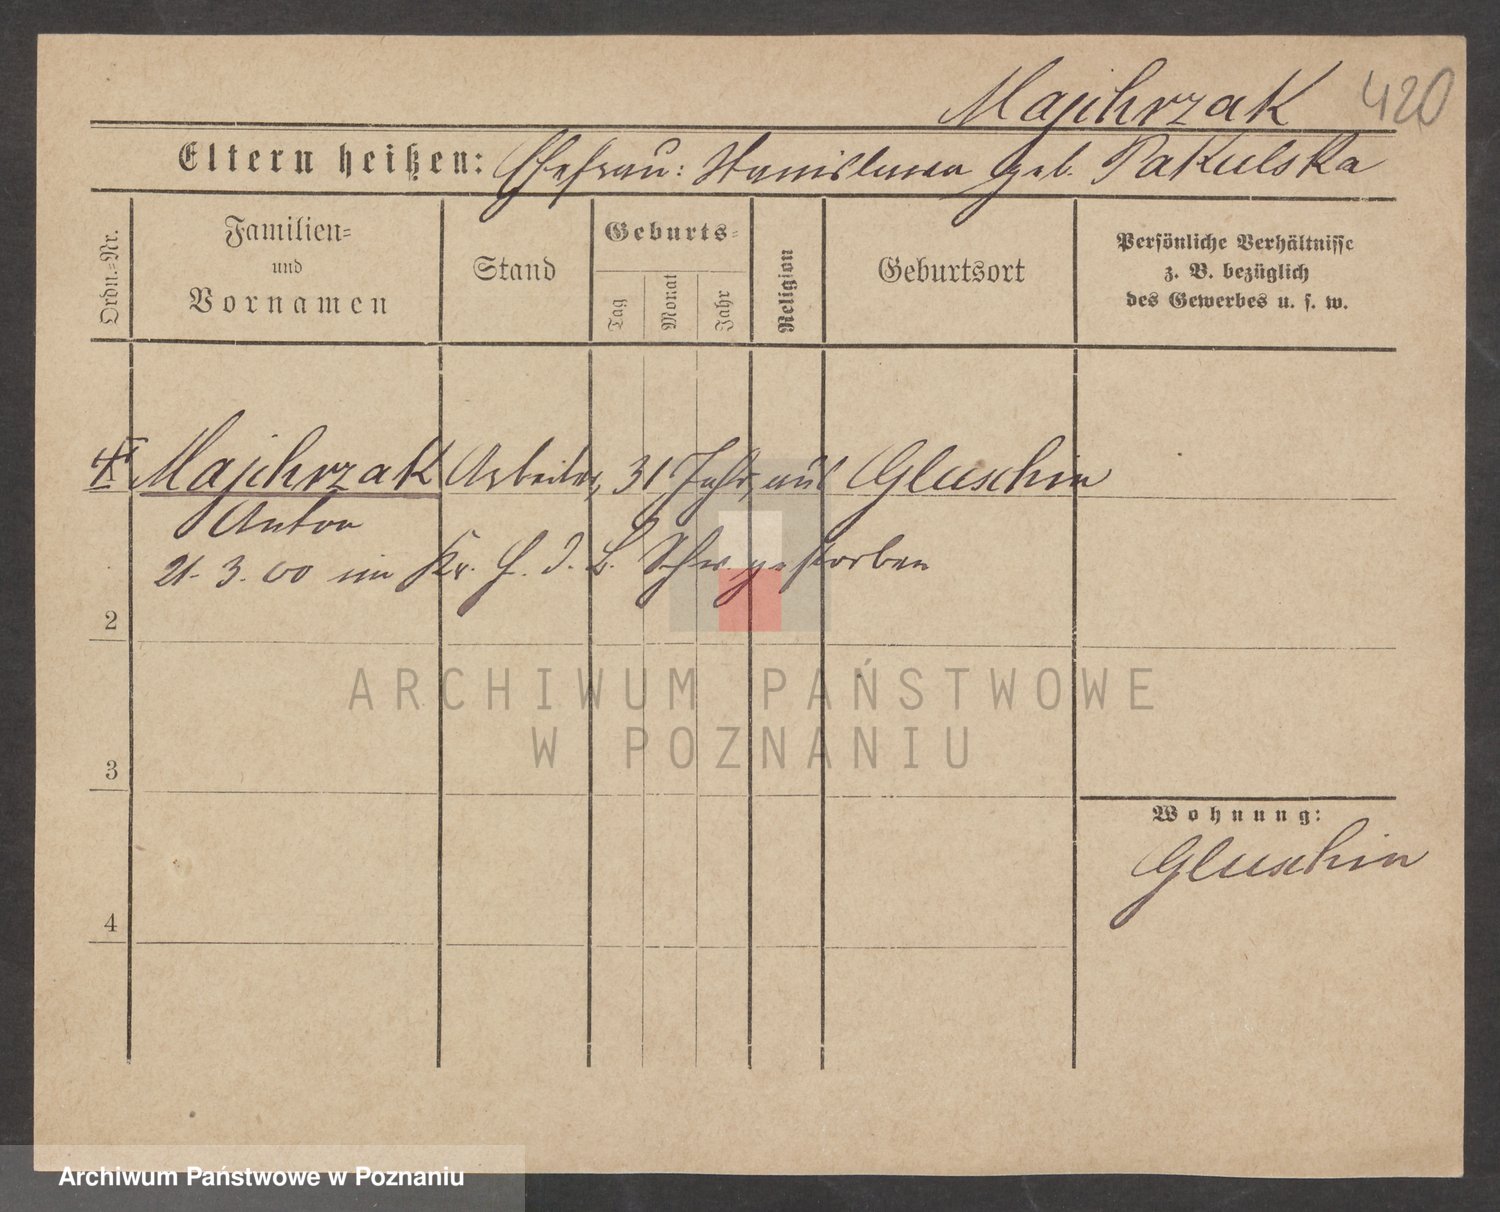 Majchrzak 420
Eltern heißen: Ehefrau: Stanislawa geb. Pakulska
Ordn.-Nr.
Familien-
und
Vornamen
Stand
Geburts-
Tag
Monat
Jahr
Religion
Geburtsort
Persönliche Verhältnisse
z. B. bezüglich
des Gewerbes u. s. w.
Majchrzak Arbeiter, 31 Jahr, aus Gluschin
Anton
21. 3. 00 im Kr. H. d. B. Schw. gestorben
2
ARCHIWUM PAŃSTWOWE
W POZNANIU
3
Wohnung:
Gluschin
4
Archiwum Państwowe w Poznaniu